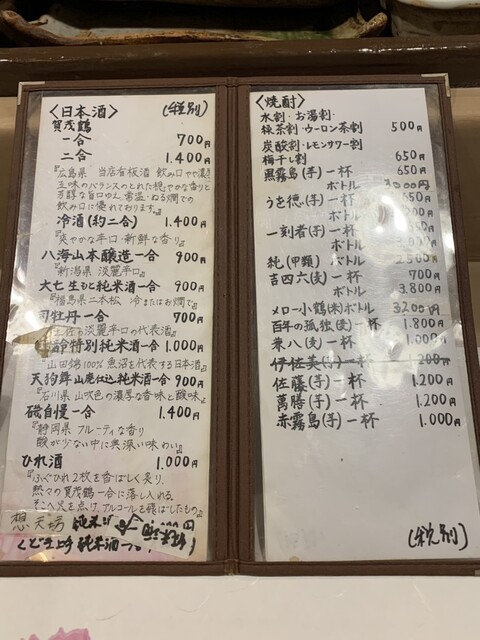 〈日本酒〉 (税別)
賀茂鶴
一合 700円
二合 1.400円
『広島県 当店看板酒 飲み口やや濃
五味のバランスのとれた穏やかな香りと
芳醇な旨口ゆえ、常温・ぬる燗での
飲み口に優れております。』
冷酒(約二合) 1.400円
『爽やかな辛口・新鮮な香り』
八海山本醸造一合 900円
『新潟県 淡麗辛口』
大七 生もと純米酒一合 900円
『福島県二本松 冷またはお燗で』
司牡丹一合 700円
淡麗辛口の代表酒
特別純米酒一合 1.000円
山田錦100% 魚沼を代表する日本酒』
天狗舞 山廃仕込純米酒一合 900円
『石川県 山吹色の濃厚な香味と酸味』
磯自慢一合 1.400円
『静岡県 フルーティな香り
酸が少ない中に奥深い味わい』
ひれ酒 1.000円
『ふぐひれ2枚を香ばしく炙り、
熱々の賀茂鶴一合に落し入れる
そこへ火を点け、アルコールを飛ばしたもの』
想天坊 純米酒 一合
くどき上手 純米酒
〈焼酎〉
水割・お湯割・
抹茶割・ウーロン茶割 500円
炭酸割・レモンサワー割
梅干し割 650円
黒霧島(芋)一杯 650円
ボトル 3000円
(芋)一杯 650
ボトル
一刻者(芋)一杯
ボトル
純(甲類) ボトル 2500円
吉四六(麦)一杯 700円
ボトル 3.800円
メロー小鶴(米)ボトル 3200円
百年の孤独(麦)一杯 1.800円
兼八(麦)一杯 1.000円
伊佐美(芋)一杯 1.200円
佐藤(芋)一杯 1.200円
萬膳(芋)一杯 1.200円
赤霧島(芋)一杯 1.000円
(税別)